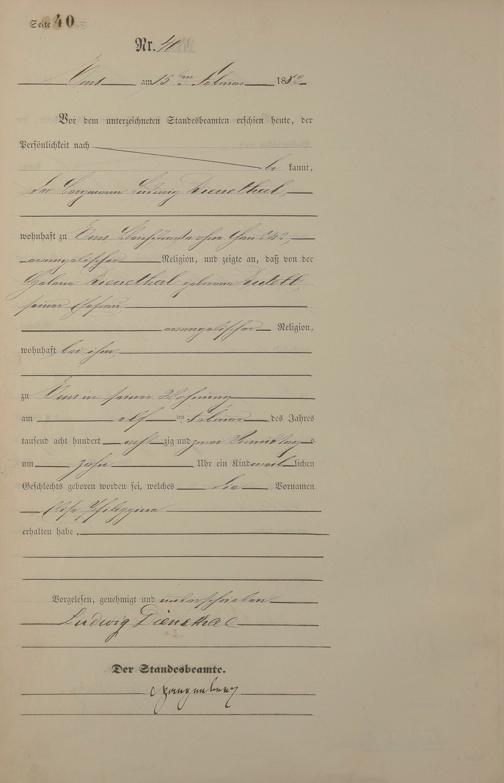 Seite 40
Nr. 40
Ems am 15 ten Februar 1882
Vor dem unterzeichneten Standesbeamten erschien heute, der
Persönlichkeit nach
be kannt,
der Bergmann Ludwig Diensthal
wohnhaft zu Ems
evangelischer Religion, und zeigte an, daß von der
Diensthal geborene
seiner Ehefrau
evangelischer Religion,
wohnhaft bei ihm
zu Ems in seiner Wohnung
am elf ten Februar des Jahres
tausend acht hundert acht zig und zwei Vormittags
um zehn Uhr ein Kind weib lichen
Geschlechts geboren worden sei, welches die Vornamen
Philippina
erhalten habe.
Vorgelesen, genehmigt und unterschrieben
Ludwig Diensthal
Der Standesbeamte.